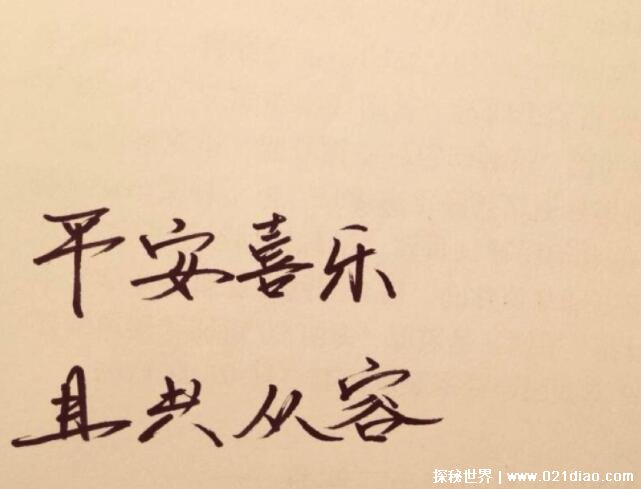 平安喜乐
且共从容
探秘世界 | www.021diao.com